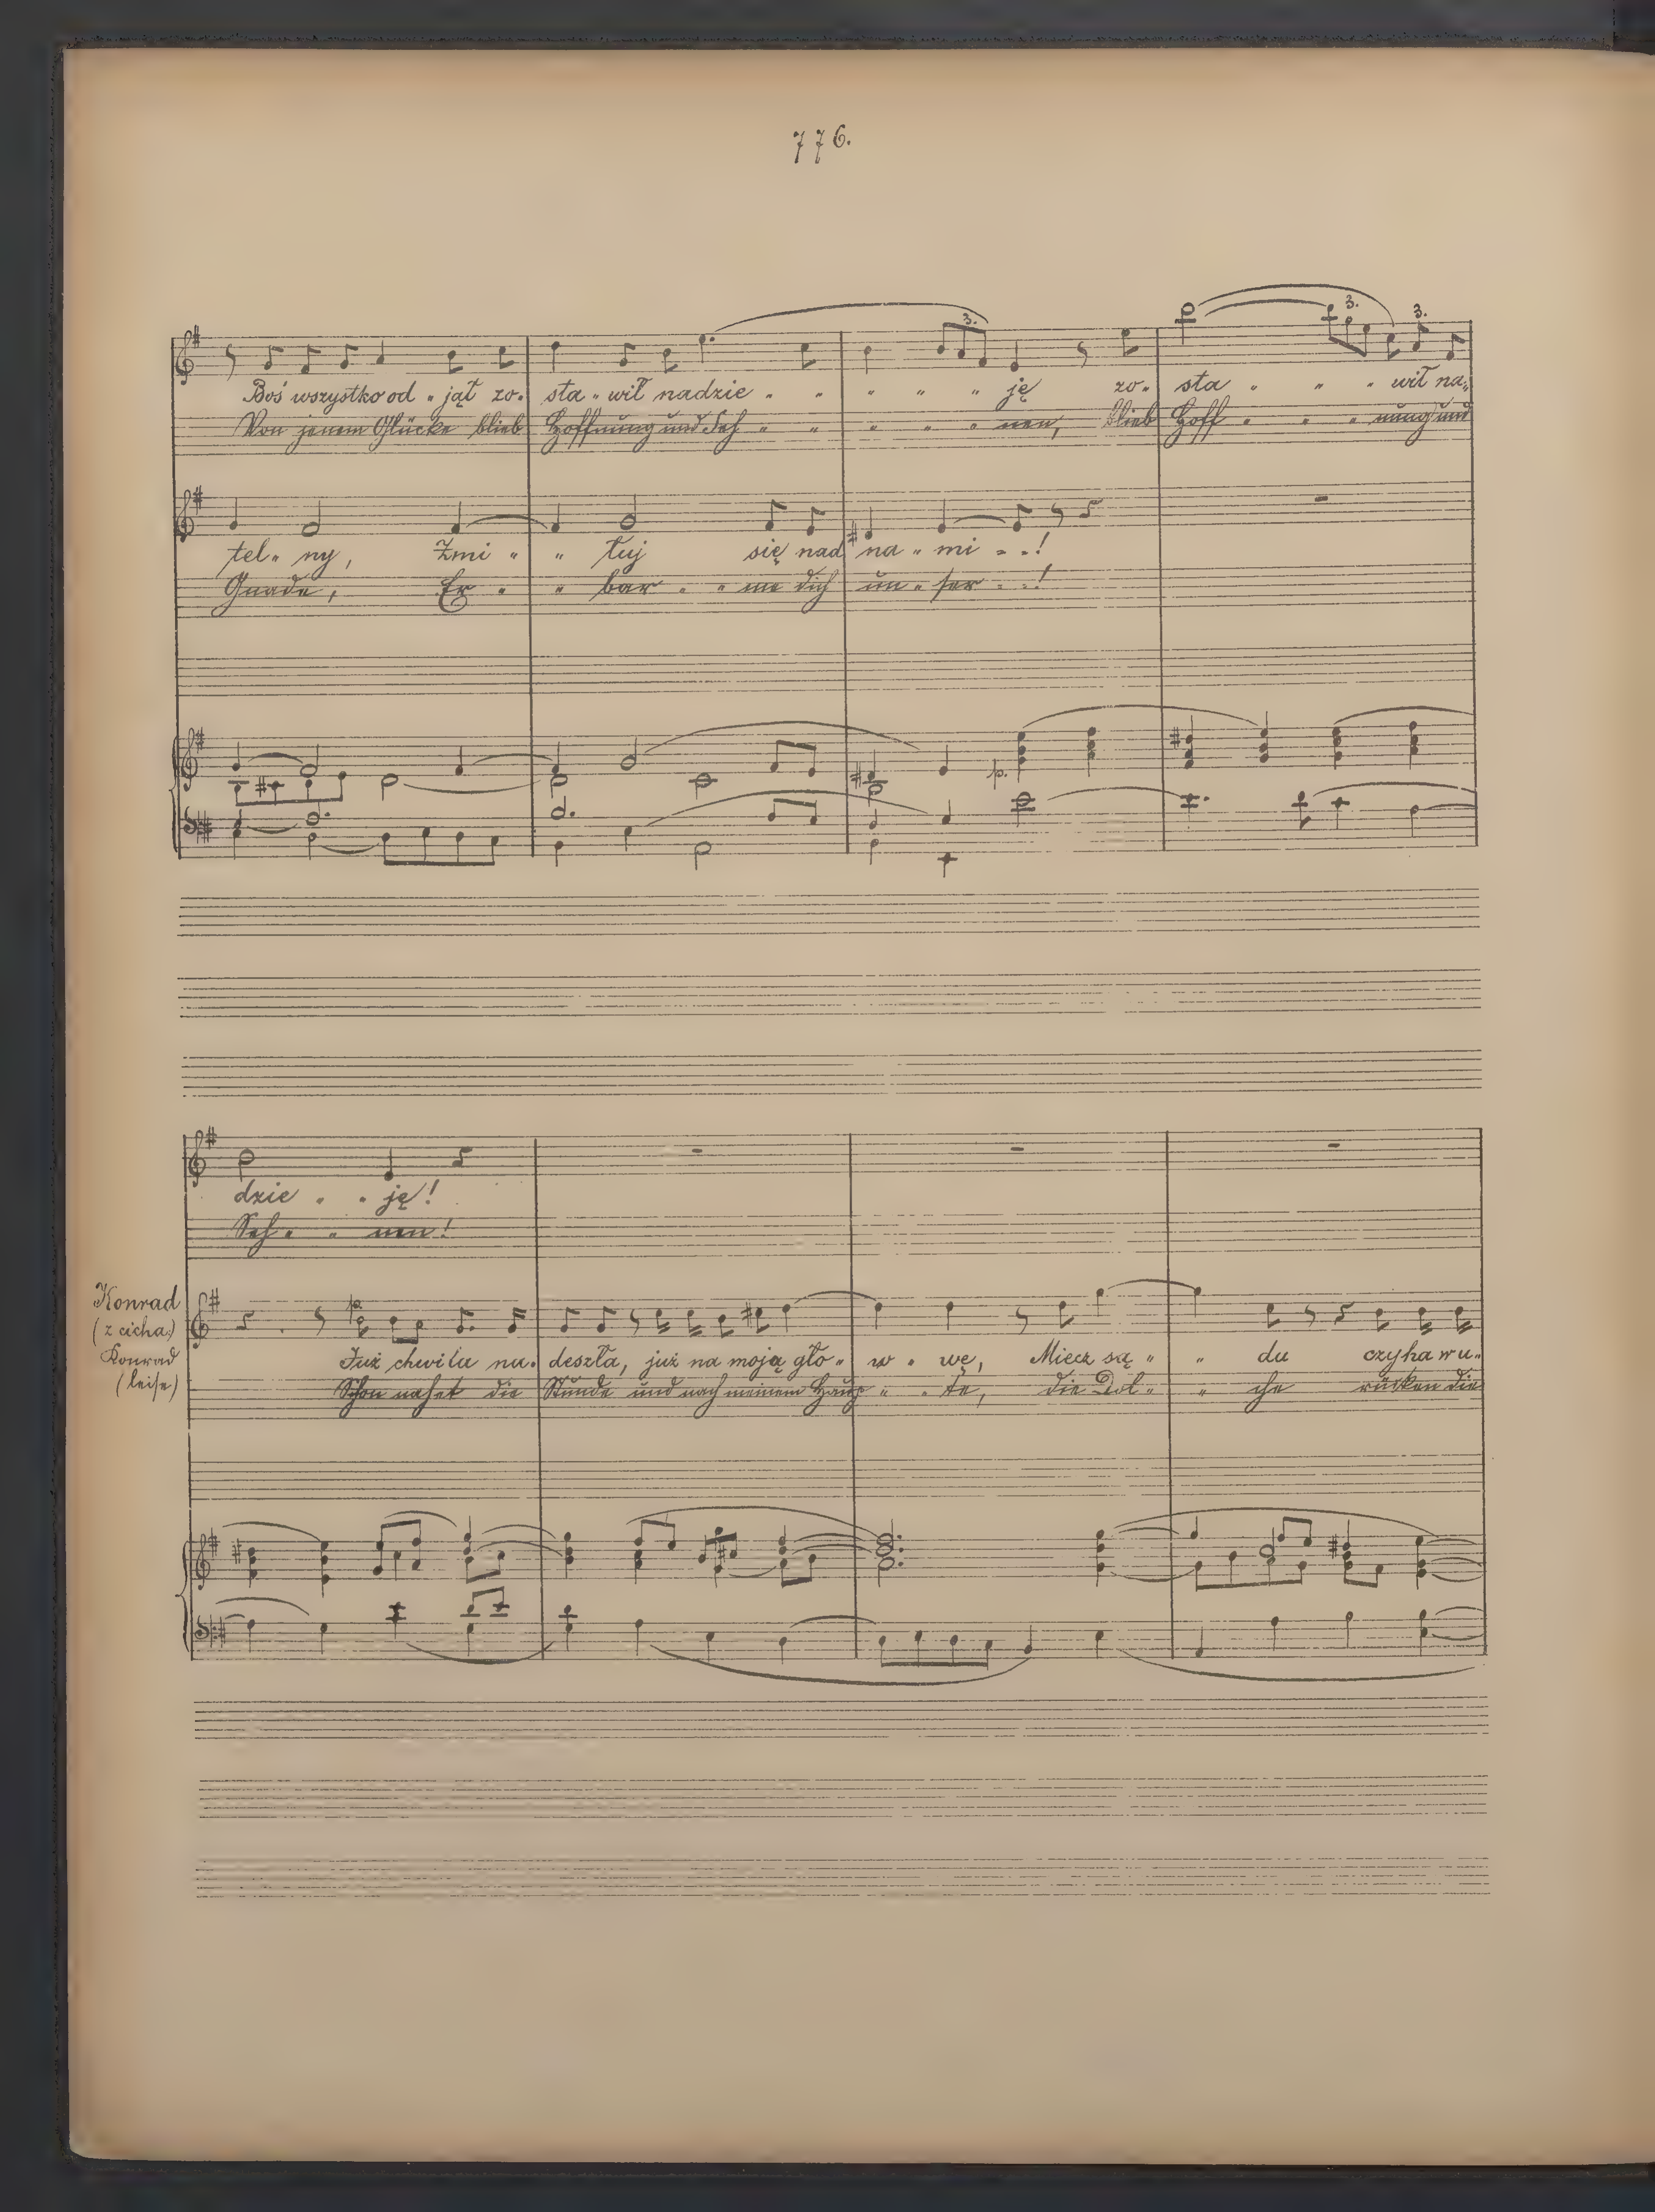 776.
3. 3. 3.
Boś wszystko od „ jął zo. sta „ wił nadzie „ „ „ „ „ ję zo. sta „ „ „ wił na„
Von jenem Glücke blieb Hoffnung und Seh „ „ „ „ „ nen, blieb Hoff „ „ „ nung und
tel „ ny, Zmi „ „ łuj się nad na „ mi „ „!
Gnade, Er „ „ bar „ „ me dich un „ ser „ „!
p.
dzie „ „ ję!
Seh „ „ nen!
Konrad
(z cicha)
Konrad
(leise)
p.
Już chwila na. deszła, już na moją gło „ w „ wę, Miecz są „ „ du czyha w u„
Schon nahet die Stunde und nach meinem Haup „ „ te, die Dol „ „ che rücken die